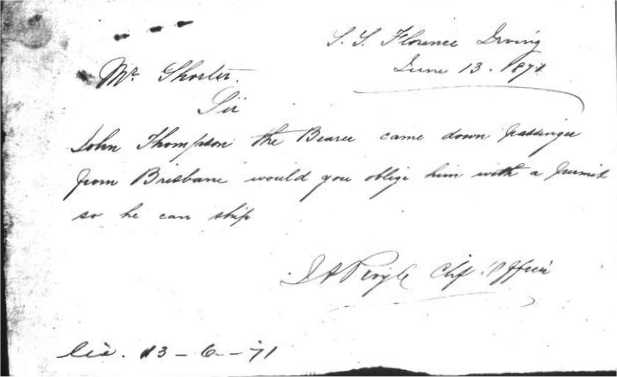 S. S. Florence Irving
June 13. 1871
Mr. Shorter.
Sir
John Thompson the Bearer came down passenger
from Brisbane would you oblige him with a permit
so he can ship
Chf. Officer
13-6-71